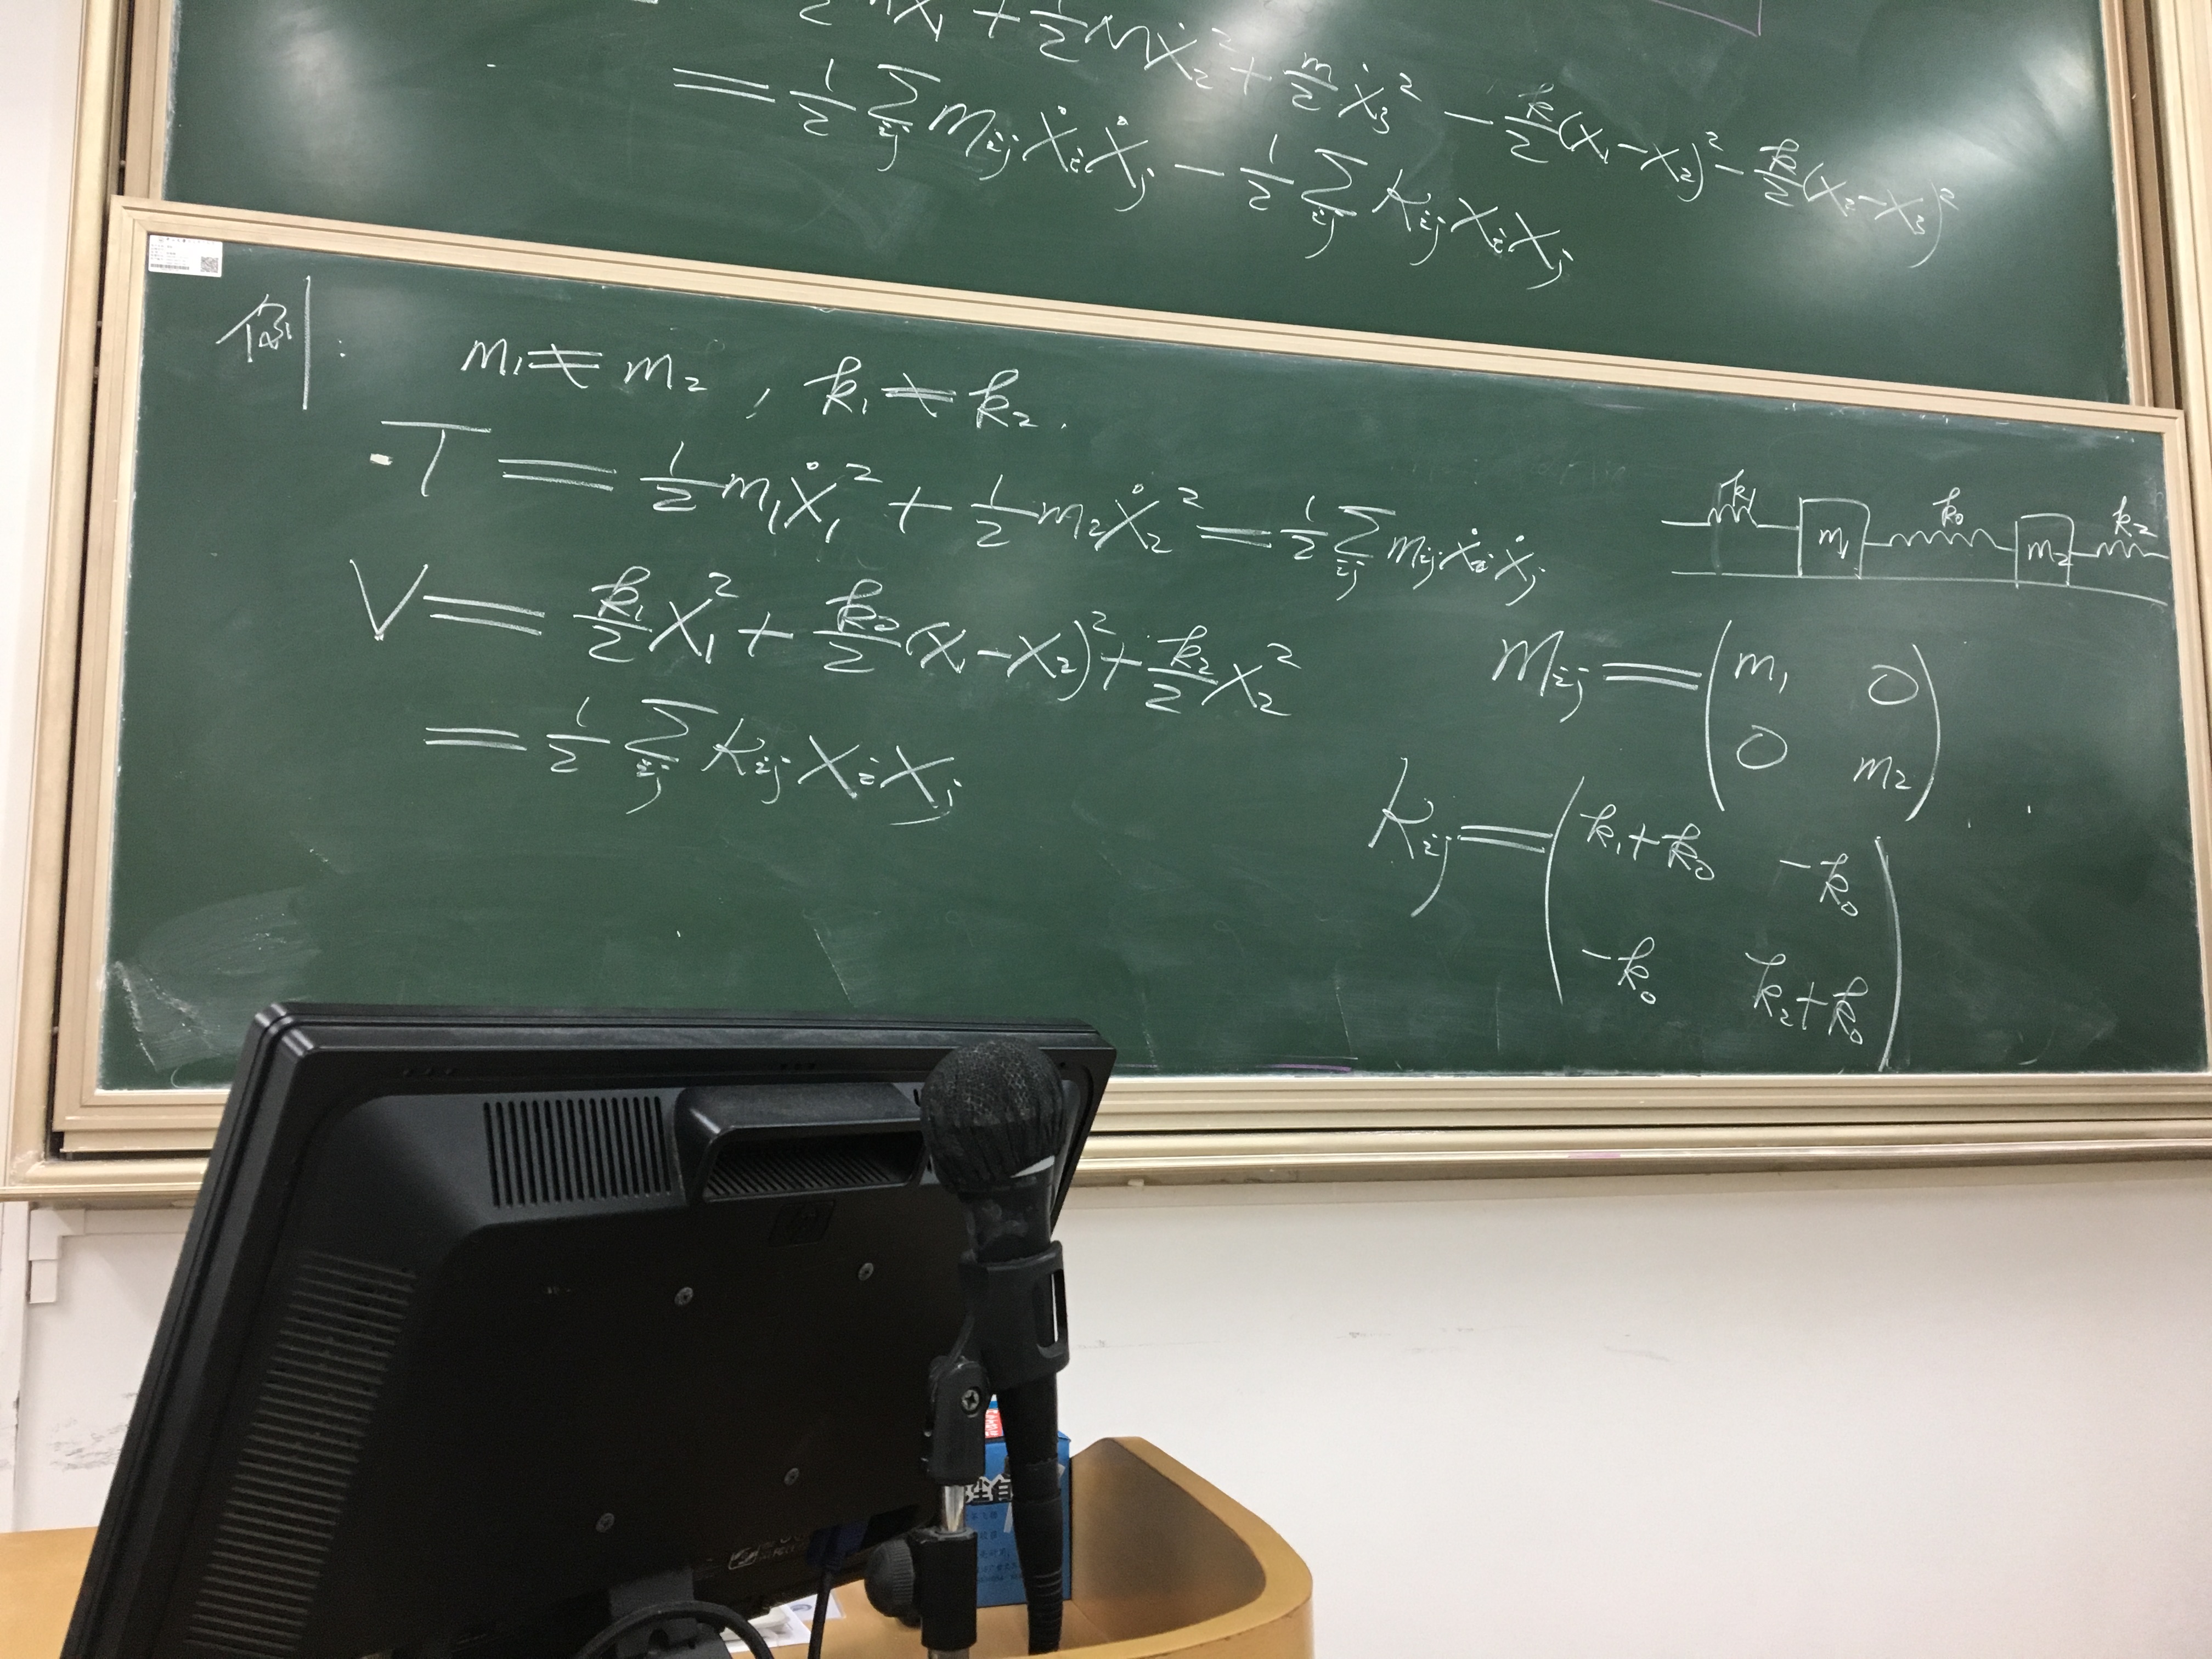 ½mẋ₁ + ½Mẋ₂² + m/2 ẋ₃² − k/2(x₁−x₂)² − k/2(x₂−x₃)²
= ½ Σ_ij m_ij ẋ_i ẋ_j − ½ Σ_ij k_ij x_i x_j
例:
m₁ ≠ m₂ , k₁ ≠ k₂ .
T = ½m₁ẋ₁² + ½m₂ẋ₂² = ½ Σ_ij m_ij ẋ_i ẋ_j
V = k₁/2 x₁² + k₀/2 (x₁−x₂)² + k₂/2 x₂²
= ½ Σ_ij k_ij x_i x_j
k₁ m₁ k₀ m₂ k₂
m_ij = ( m₁ 0
0 m₂ )
k_ij = ( k₁+k₀ −k₀
−k₀ k₂+k₀ )